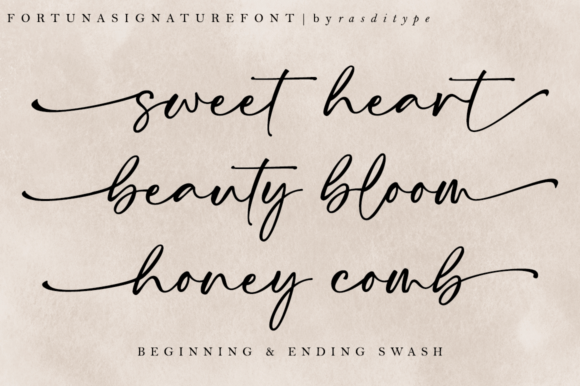 FORTUNASIGNATUREFONT | by rasditype
sweet heart
beauty bloom
honey comb
BEGINNING & ENDING SWASH